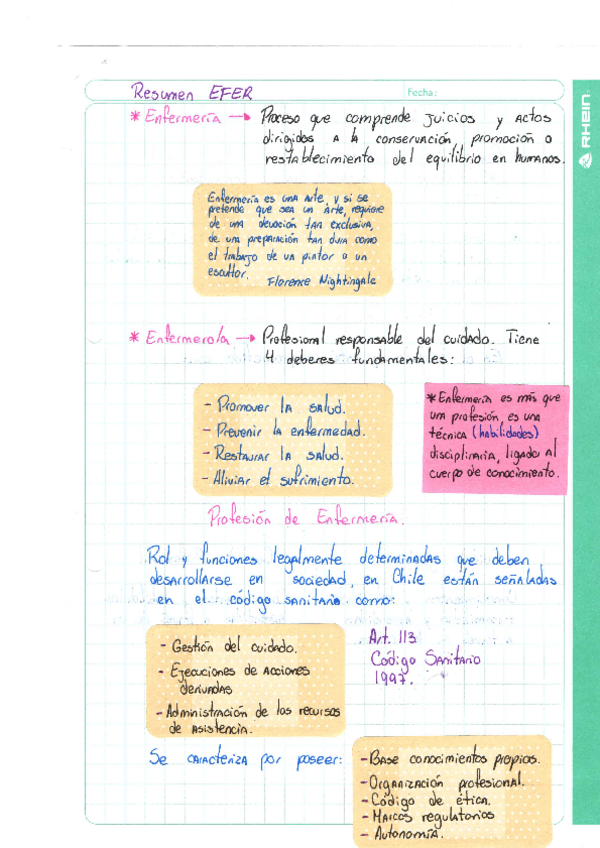 Resumen EFER
Fecha:
RHEIN
* Enfermería → Proceso que comprende juicios y actos
dirigidos a la conservación, promoción o
restablecimiento del equilibrio en humanos.
Enfermería es una arte, y si se
pretende que sea un arte, requiere
de una devoción tan exclusiva,
de una preparación tan dura como
el trabajo de un pintor o un
escultor.
Florence Nightingale
* Enfermero/a → Profesional responsable del cuidado. Tiene
4 deberes fundamentales:
- Promover la salud.
- Prevenir la enfermedad.
- Restaurar la salud.
- Aliviar el sufrimiento.
* Enfermería es más que
una profesión, es una
técnica (habilidades)
disciplinaria, ligada al
cuerpo de conocimiento.
Profesión de Enfermería.
Rol y funciones legalmente determinadas que deben
desarrollarse en sociedad, en Chile están señaladas
en el código sanitario como:
- Gestión del cuidado.
- Ejecuciones de acciones
derivadas
- Administración de los recursos
de asistencia.
Art. 113
Código Sanitario
1997.
Se caracteriza por poseer:
- Base conocimientos propios.
- Organización profesional.
- Código de ética.
- Marcos regulatorios
- Autonomía.